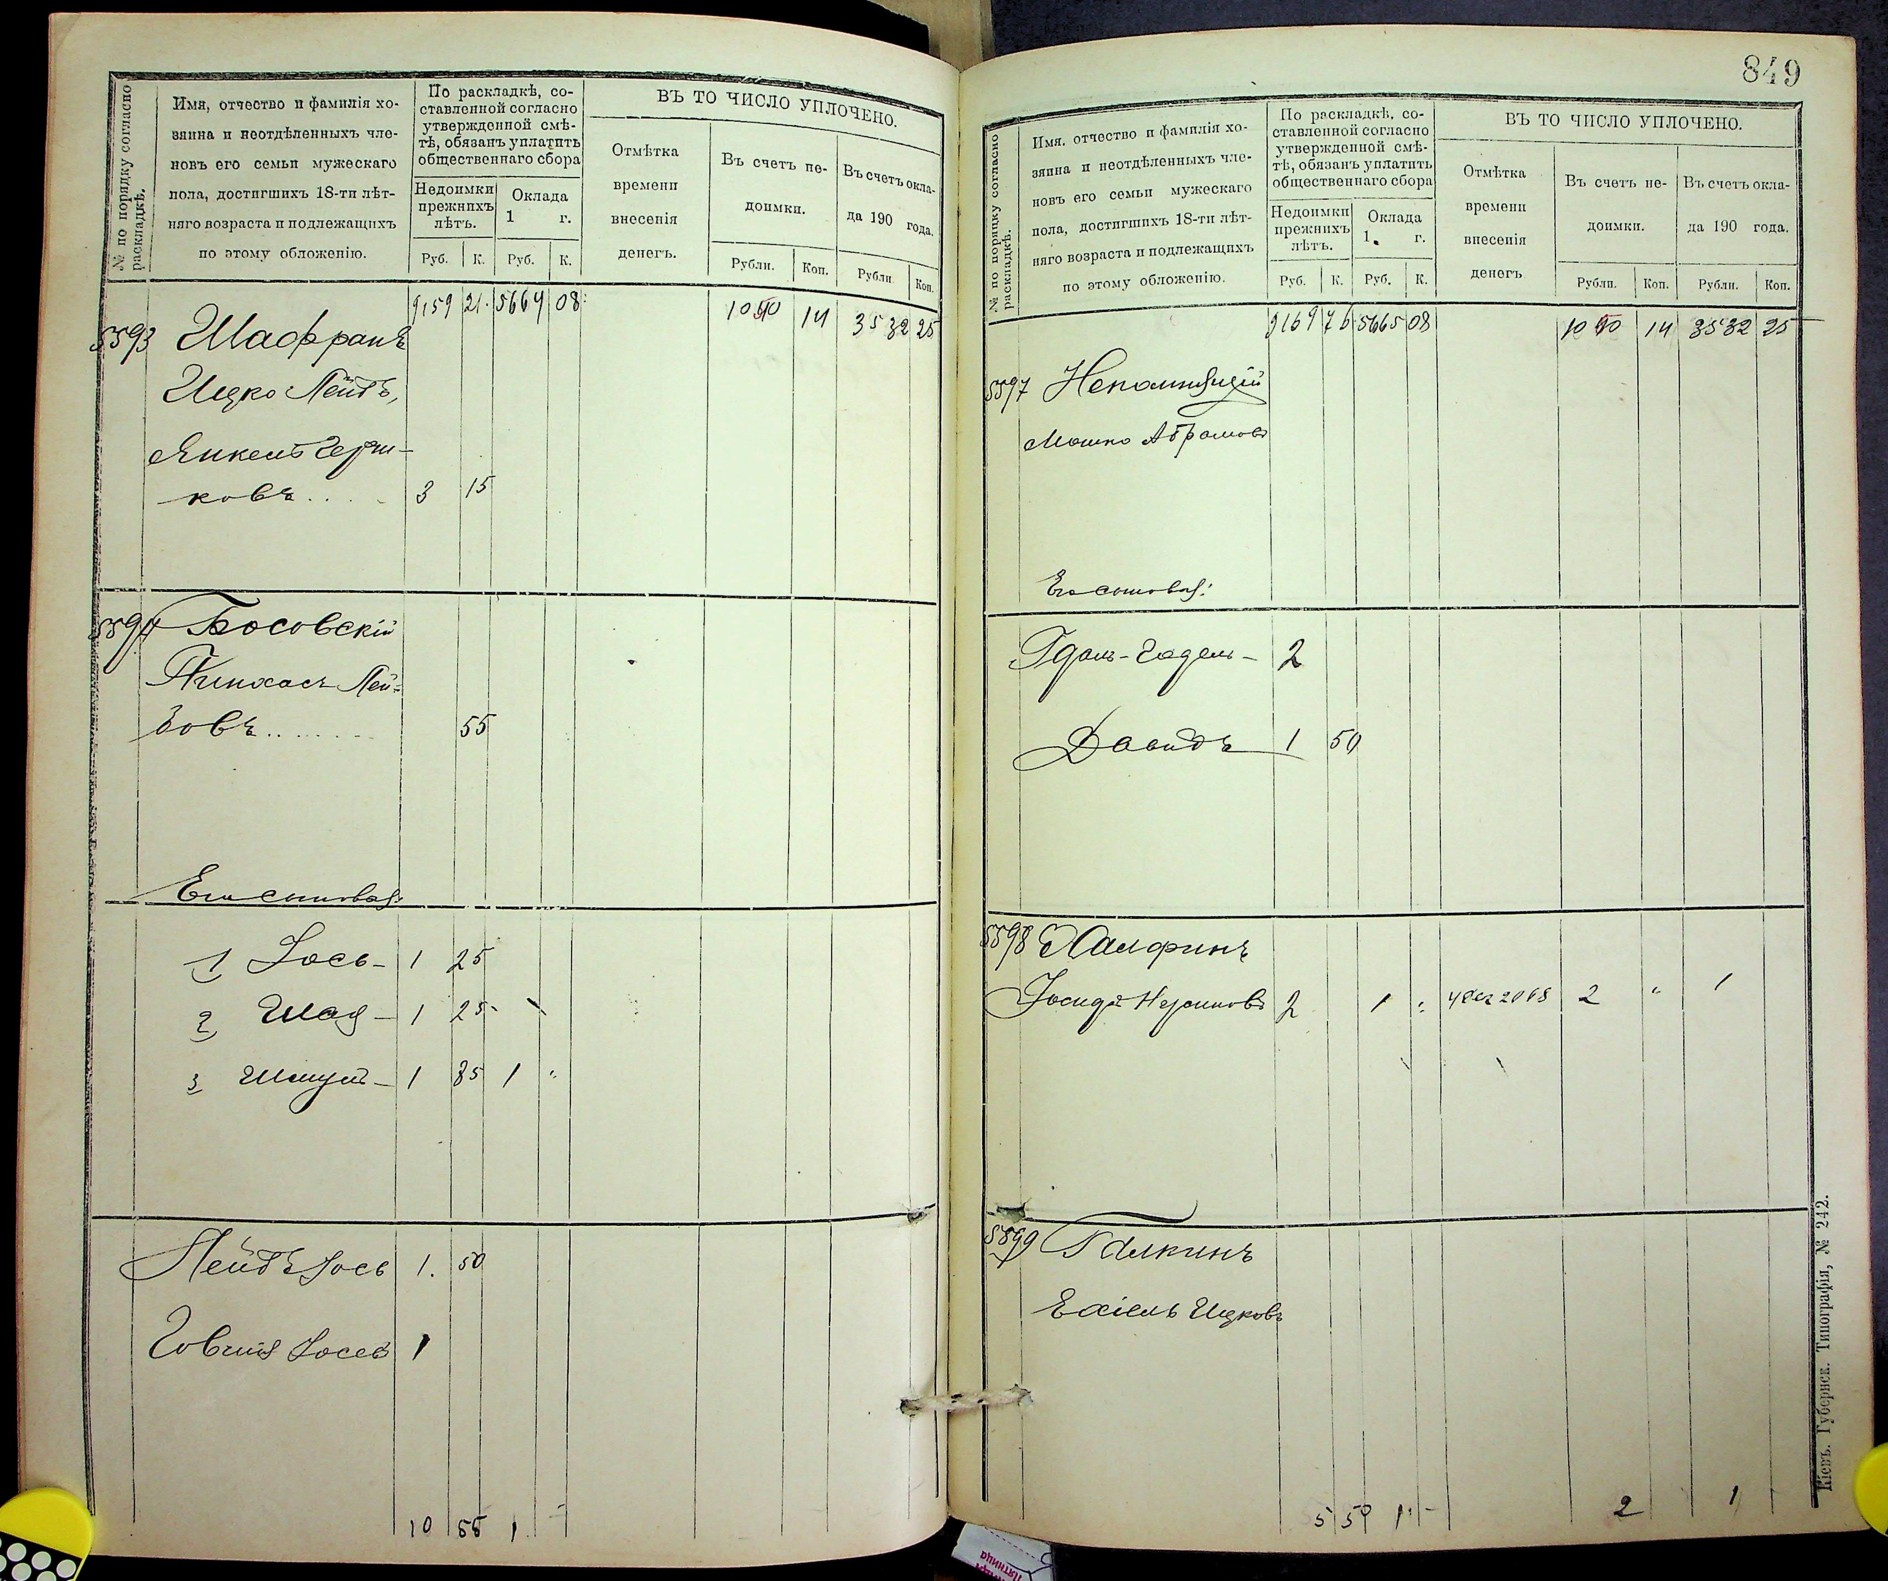 № по порядку согласно раскладкѣ.
Имя, отчество и фамилія хо-
зяина и неотдѣленныхъ чле-
новъ его семьи мужескаго
пола, достигшихъ 18-ти лѣт-
няго возраста и подлежащихъ
по этому обложенію.
По раскладкѣ, со-
ставленной согласно
утвержденной смѣ-
тѣ, обязанъ уплатить
общественнаго сбора
Недоимки
прежнихъ
лѣтъ.
Оклада
1 г.
Руб. К. Руб. К.
ВЪ ТО ЧИСЛО УПЛОЧЕНО.
Отмѣтка
времени
внесенія
денегъ.
Въ счетъ не-
доимки.
Въ счетъ окла-
да 190 года.
Рубли. Коп. Рубли Коп.
9159 21 5664 08 14 3532 25
5593 Шафранъ
Ицко Лейбъ,
Янкель Герш-
ковъ.... 3 15
5594 Босовскій
Пинхасъ Лей-
бовъ........ 55
Его сыновья:
1 Іось- 1 25
2 Шая- 1 25
3 Шмуль- 1 85 1 "
Лейбъ Іось 1. 50
Іосев 1
10 55 1 -
849
№ по порядку согласно раскладкѣ.
Имя, отчество и фамилія хо-
зяина и неотдѣленныхъ чле-
новъ его семьи мужескаго
пола, достигшихъ 18-ти лѣт-
няго возраста и подлежащихъ
по этому обложенію.
По раскладкѣ, со-
ставленной согласно
утвержденной смѣ-
тѣ, обязанъ уплатить
общественнаго сбора
Недоимки
прежнихъ
лѣтъ.
Оклада
1. г.
Руб. К. Руб. К.
ВЪ ТО ЧИСЛО УПЛОЧЕНО.
Отмѣтка
времени
внесенія
денегъ.
Въ счетъ не-
доимки.
Въ счетъ окла-
да 190 года.
Рубли. Коп. Рубли. Коп.
9169 76 5665 08 14 3532 25
5597 Непомнящій
Мошко Абрамовъ
Его сыновья:
Гдаль-Гадель- 2
Давидъ 1 50
5598 Халфинъ
Іосифъ 2 1 " 2 " 1
5599 Галкинъ
Ехіель Ицковъ
5 50 1 - 2 1
Кіевъ. Губернск. Типографія, № 242.
пятница